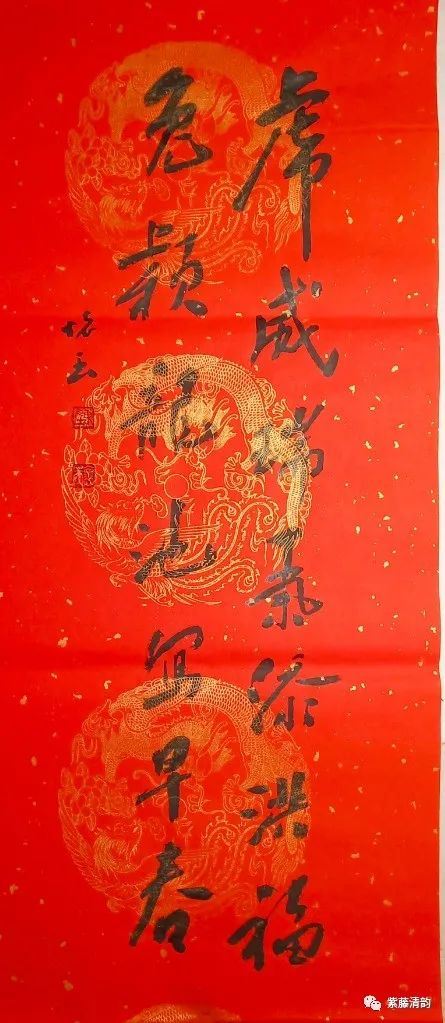 虎威瑞氣添洪福
兔颖池写早春
玉
紫藤清韵